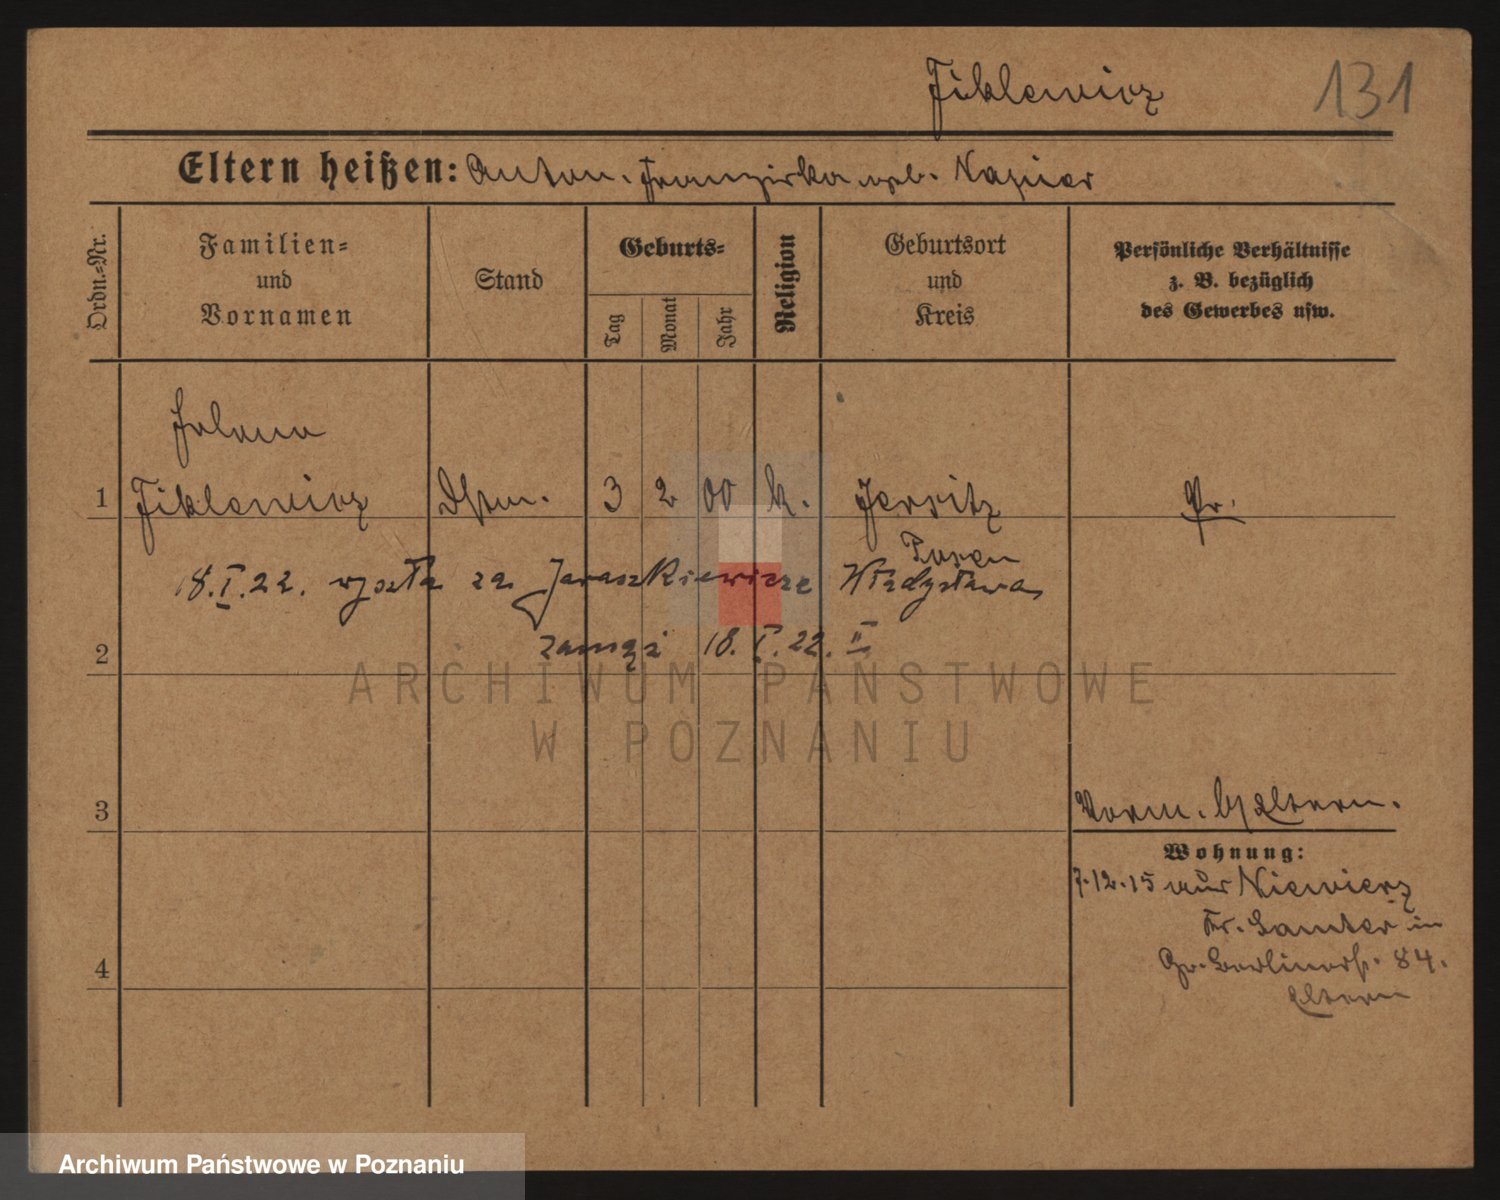 Fiklewicz 131
Eltern heißen: Anton. Franziska geb. Napier
Ordn.-Nr.
Familien-
und
Vornamen
Stand
Geburts-
Tag
Monat
Jahr
Religion
Geburtsort
und
Kreis
Persönliche Verhältnisse
z. B. bezüglich
des Gewerbes usw.
Helena
1 Fiklewicz 3 2 00 k. Jersitz Pr.
Posen
18.I.22. wyszła za Jaraszkiewicza Władysława
zamąż 18.I.22. II
2
3
Vorm. Eltern.
Wohnung:
7.12.15 aus Niewierz
Kr. Samter in
Gr. Berlinerstr. 84.
Eltern
4
ARCHIWUM PAŃSTWOWE
W POZNANIU
Archiwum Państwowe w Poznaniu